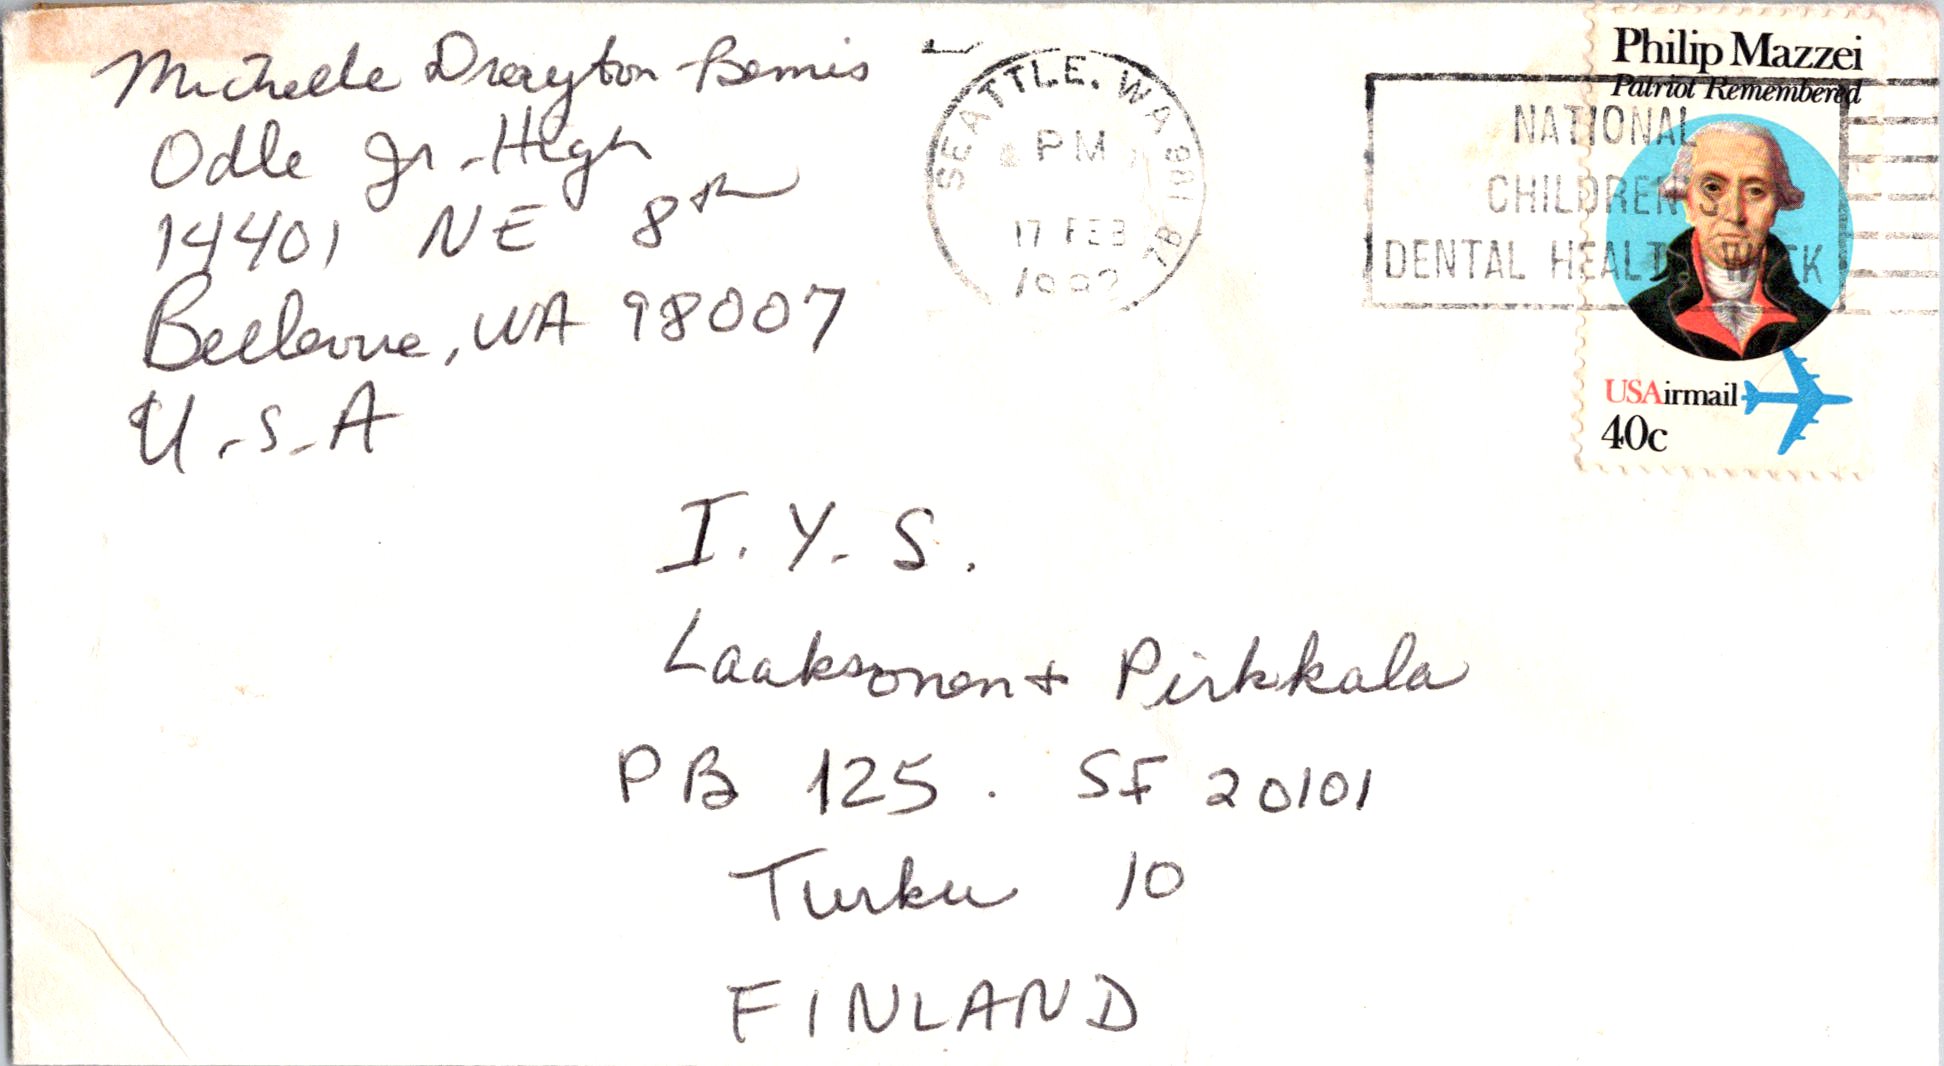 Michelle Drayton-Bemis
Odle Jr. High
14401 NE 8th
Bellevue, WA 98007
U.S.A
SEATTLE, WA 981
PM
17 FEB
1982
NATIONAL
CHILDREN'S
DENTAL HEALTH WEEK
Philip Mazzei
Patriot Remembered
USAirmail
40c
I. Y. S.
Laaksonen + Pirkkala
PB 125 . SF 20101
Turku 10
FINLAND